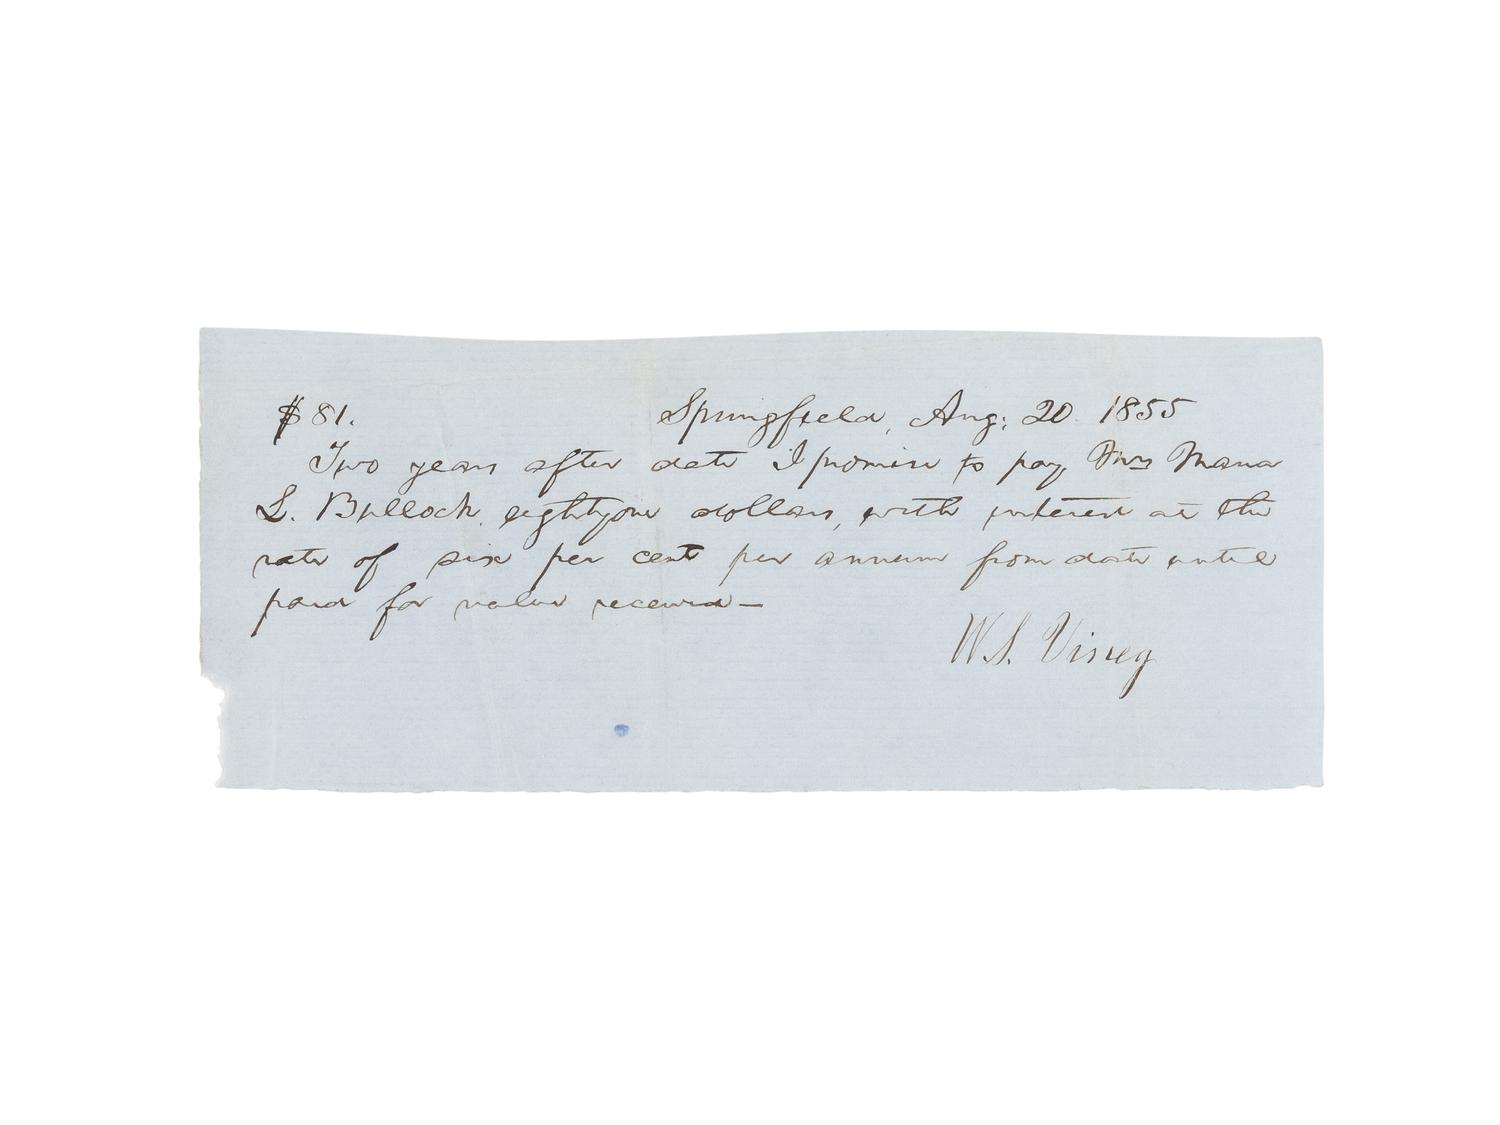 $81. Springfield, Aug: 20. 1855
Two years after date I promise to pay Mrs Maria
L. Bullock, eightyone dollars, with interest at the
rate of six per cent per annum from date until
paid for value received—
W.S. Viney